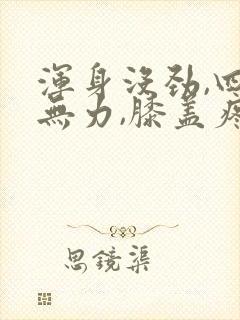 渾身沒勁,四
無力,膝盖疼
思鏡渠